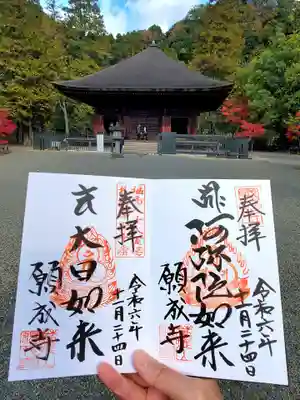 奉拝
阿弥陀如来
願成寺
令和六年
十一月二十四日
奉拝
大日如来
願成寺
令和六年
十一月二十四日